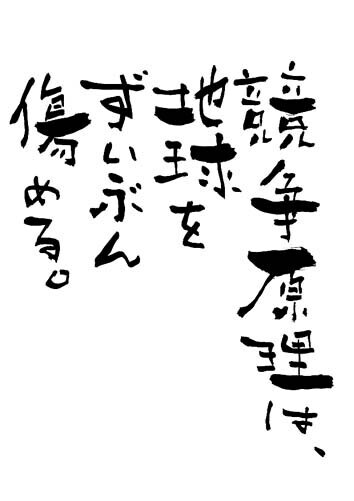 競争原理は、
地球を
ずいぶん
傷める。